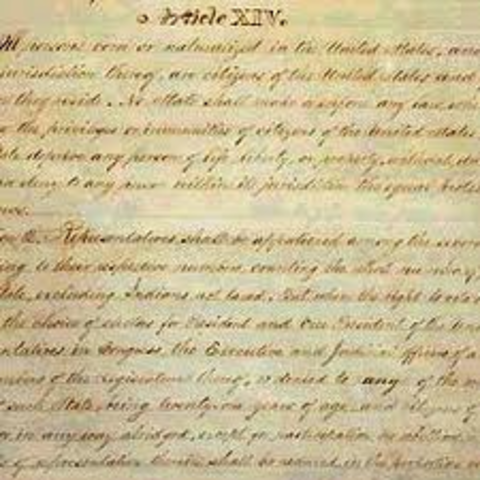 Article XIV.
All persons born or naturalized in the United States, and
jurisdiction thereof, are citizens of the United States and
they reside. No State shall make or enforce any law which
the privileges or immunities of citizens of the United States
deprive any person of life, liberty, or property, without due
deny to any person within its jurisdiction the equal protec
laws.
2. Representatives shall be apportioned among the several
ing to their respective numbers, counting the whole number of
State, excluding Indians not taxed. But when the right to vote
the choice of electors for President and Vice President of the United
entatives in Congress, the Executive and Judicial officers of a
members of the Legislature thereof, is denied to any of the
such State, being twenty-one years of age, and citizens of
or in any way abridged, except for participation in rebellion,
of representation therein shall be reduced in the proportion